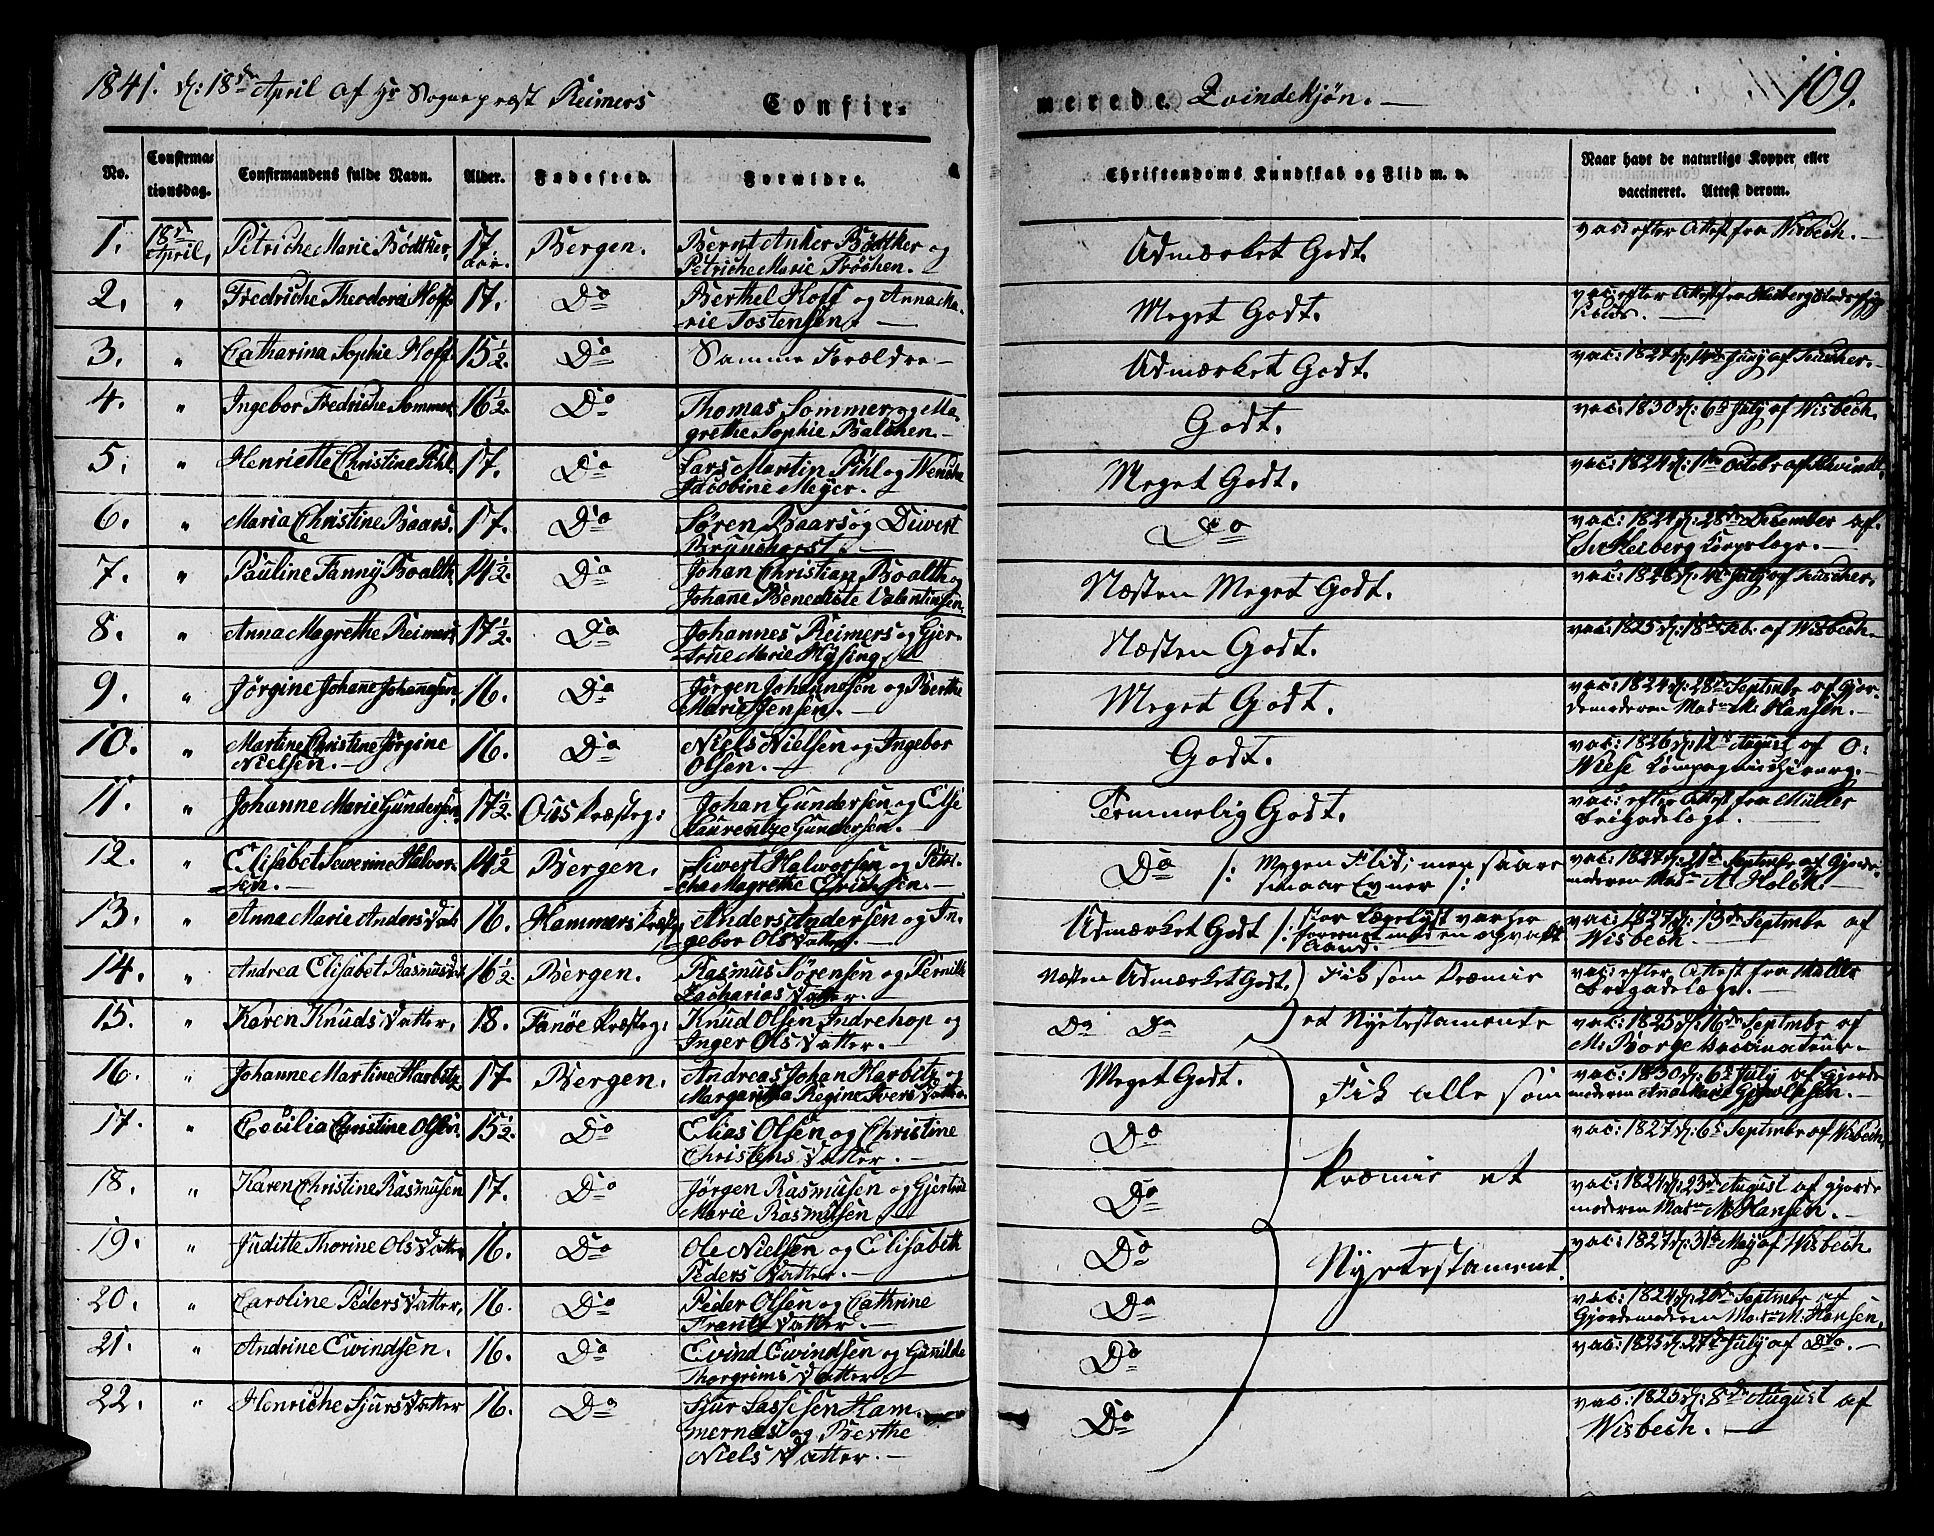 1841. d: 18de April af Hr Sognepræst Reimers Confir-
merede. Qvindekjøn. —
109.
No. Confirmationsdag. Confirmandens fulde Navn. Alder. Fødested. Forældre. Christendoms Kundskab og Flid m. v. Naar havt de naturlige Kopper eller vaccineret. Attest derom.
1. 18de April, Petriche Marie Bödtker, 17 aar. Bergen. Bernt Anker Bödtker og
Petriche Marie Fröchen. Udmærket Godt. vac: efter Attest fra Wisbech. —
2. " Fredriche Theodora Hoff 17. Do Berthel Hoff og Anna Ma-
rie Tostensen. — Meget Godt. vac: efter Attest fra Heiberg
3. " Catharina Sophie Hoff 15½. Do Samme Forældre — Udmærket Godt. vac: 1827 d: 14de July af
4. " Ingebor Fredriche Sommer 16½. Do Thomas Sommer og Ma-
grethe Sophie Balchen. — Godt. vac: 1830 d: 6te July af Wisbech.
5. " Henriette Christine Pihl 17. Do Lars Martin Pihl og Wenche
Jacobine Meyer. — Meget Godt. vac: 1824 d: 1ste Octobr af
6. " Maria Christine Baars. 17. Do Sören Baars og Divert
Brunchorst. — Do vac: 1824 d: 28de December af
Chr Heiberg Corpslæge. —
7. " Pauline Fanny Boalth 14½. Do Johan Christian Boalth og
Johane Benedicte Valentinsen. Næsten Meget Godt. vac: 1828 d: July af
8. " Anna Magrethe Reimers 17½. Do Johannes Reimers og Gjer-
true Marie Hysing. Næsten Godt. vac: 1825 d: 18de Feb: af Wisbech —
9. " Jörgine Johane Johannesen, 16. Do Jörgen Johannesen og Berthe
Marie Jensen. — Meget Godt. vac: 1824 d: 28de Septembr af Gjor-
demoderen Madm M: Hansen. —
10. " Martine Christine Jörgine
Nielsen. — 16. Do Niels Nielsen og Ingebor
Olsen. — Godt. vac: 1826 d: 12te August af O:
Wiese Compagniechirurg. —
11. " Johanne Marie Gundersen, 17½. Ous Præsteg: Johan Gundersen og Else
Laurentze Gundersen. — Temmelig Godt. vac: efter Attest fra Müller
Brigadelæge. —
12. " Elisabet Severine Halvor-
sen. — 14½ Bergen. Sivert Halvorsen og Petri-
cha Magrethe Eriksen. — Do /: Megen Flid; men saare
smaae Evner :/ vac: 1827 d: 21de Septembr af Gjorde-
moderen Madm A: Holck. —
13. " Anna Marie Anders Datter 16. Hammers Præsteg: Anders Andersen og In-
gebor Ols Datter. — Udmærket Godt /: stor Lærelyst var her
forenet med en opvakt
Aand. vac: 1827 d: 13de Septembr af
Wisbech. —
14. " Andrea Elisabet Rasmusdr 16½ Bergen. Rasmus Sörensen og Pernille
Zacharias Datter. — Næsten Udmærket Godt. Fik som Præmie vac: efter Attest fra Müller
Brigadelæge. —
15. " Karen Knuds Datter, 18. Fanöe Præsteg: Knud Olsen Indrehop og
Inger Ols Datter. — Do Do et Nyetestamente vac: 1825 d: 16de Septembr af
M: Borge Vaccinateur. —
16. " Johanne Martine Harbitz 17 Bergen. Andreas Johan Harbitz og
Margaritha Regine Ivers Datter. Meget Godt. Fik alle som vac: 1830 d: 6te July af Gjorde-
moderen
17. " Cecilia Christine Olsen. 15½. Do Elias Olsen og Christine
Christens Datter. — Do vac: 1827 d: 6te Septembr af Wisbech,
18. " Karen Christine Rasmusen 17. Do Jörgen Rasmusen og Gjertrue
Marie Rasmusen Do Præmie et vac: 1824 d: 23de August af Gjorde
moderen Madm M: Hansen. —
19. " Juditte Thorine Ols Datter 16. Do Ole Nielsen og Elisabeth
Peders Datter. — Do Nyetestament. vac: 1827 d: 31te May af Wisbech.
20. " Caroline Peders Datter, 16. Do Peder Olsen og Cathrine
Frantz Datter. — Do vac: 1824 d: Septembr af
Gjordemoderen Madm M: Hansen,
21. " Andrine Eivindsen. 16. Do Eivind Eivindsen og Gunilde
Thorgrims Datter — Do vac: 1825 d: 27de July af Do. —
22. " Henriche Sjurs Datter 16. Do Sjur Lassesen Ham-
mernes og Berthe
Niels Datter. — Do vac: 1825 d: 8de August af
Wisbech. —